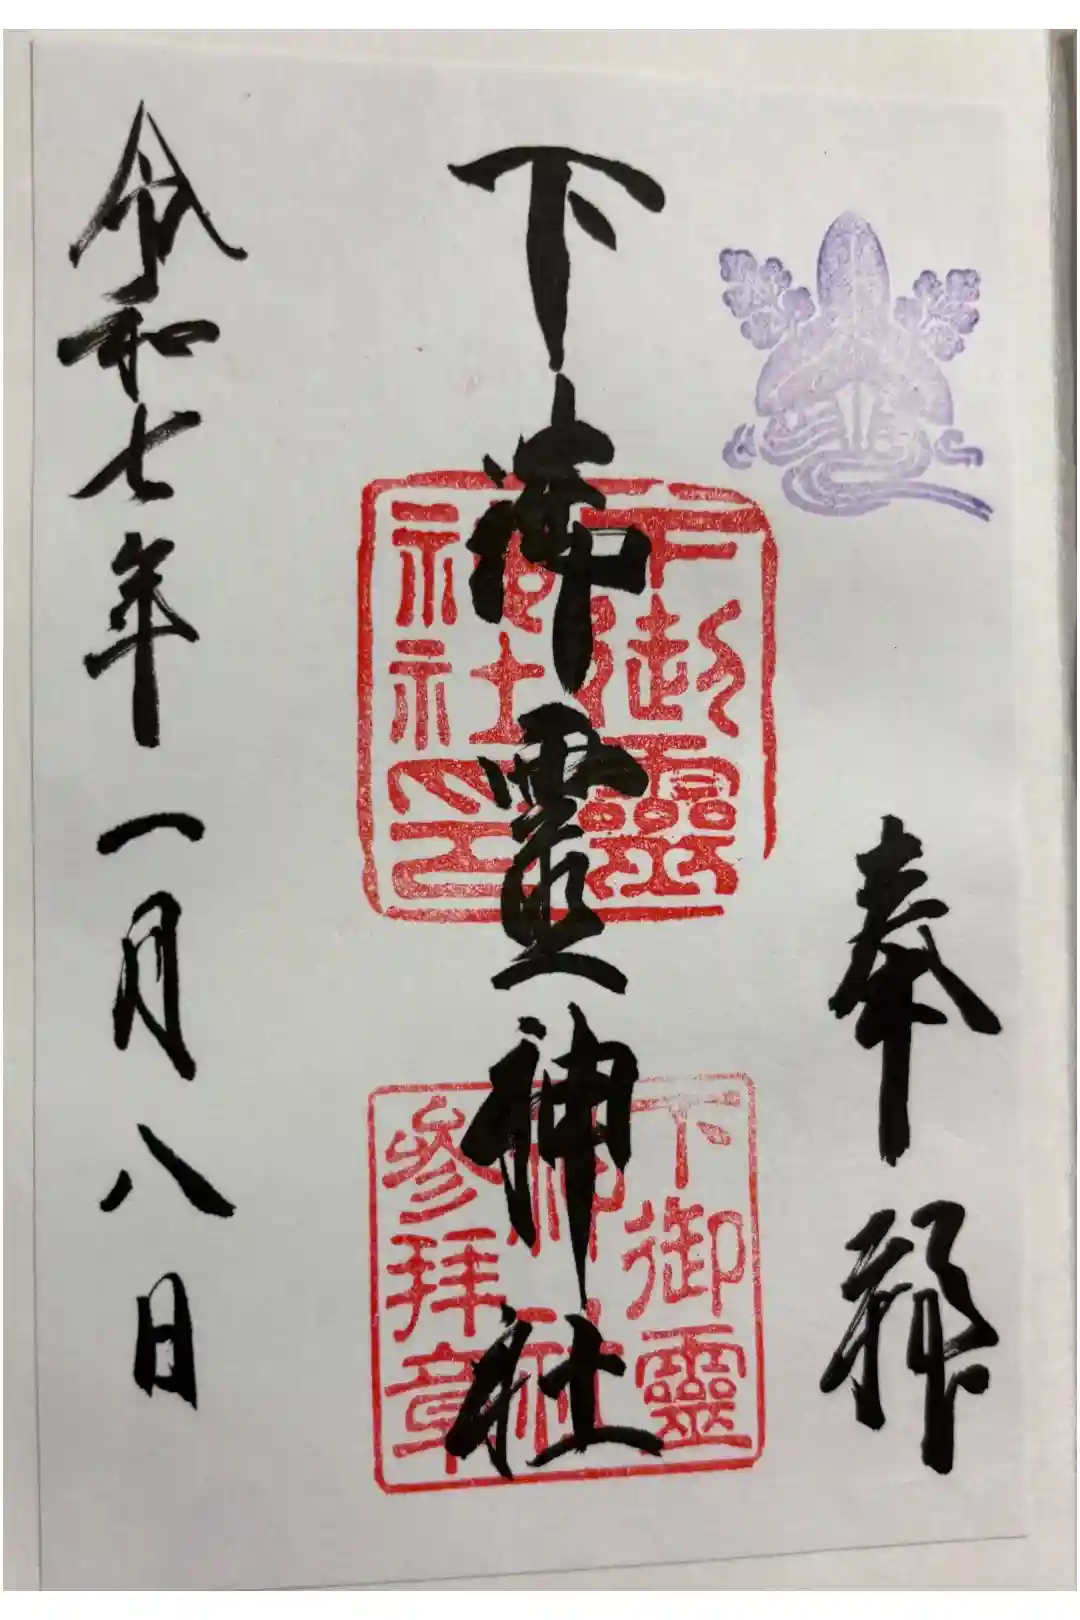 奉拝
下御靈神社
下御靈神社印
下御靈神社参拝章
令和七年一月八日